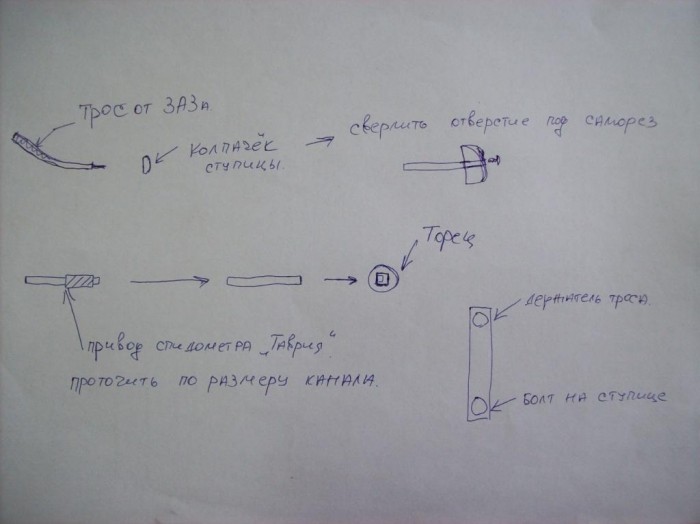 ТРОС ОТ ЗАЗа
КОЛПАЧЁК
СТУПИЦЫ.
СВЕРЛИТЬ ОТВЕРСТИЕ ПОД САМОРЕЗ
ТОРЕЦ
ПРИВОД СПИДОМЕТРА „ТАВРИЯ“.
ПРОТОЧИТЬ ПО РАЗМЕРУ КАНАЛА.
ДЕРЖАТЕЛЬ ТРОСА
БОЛТ НА СТУПИЦЕ